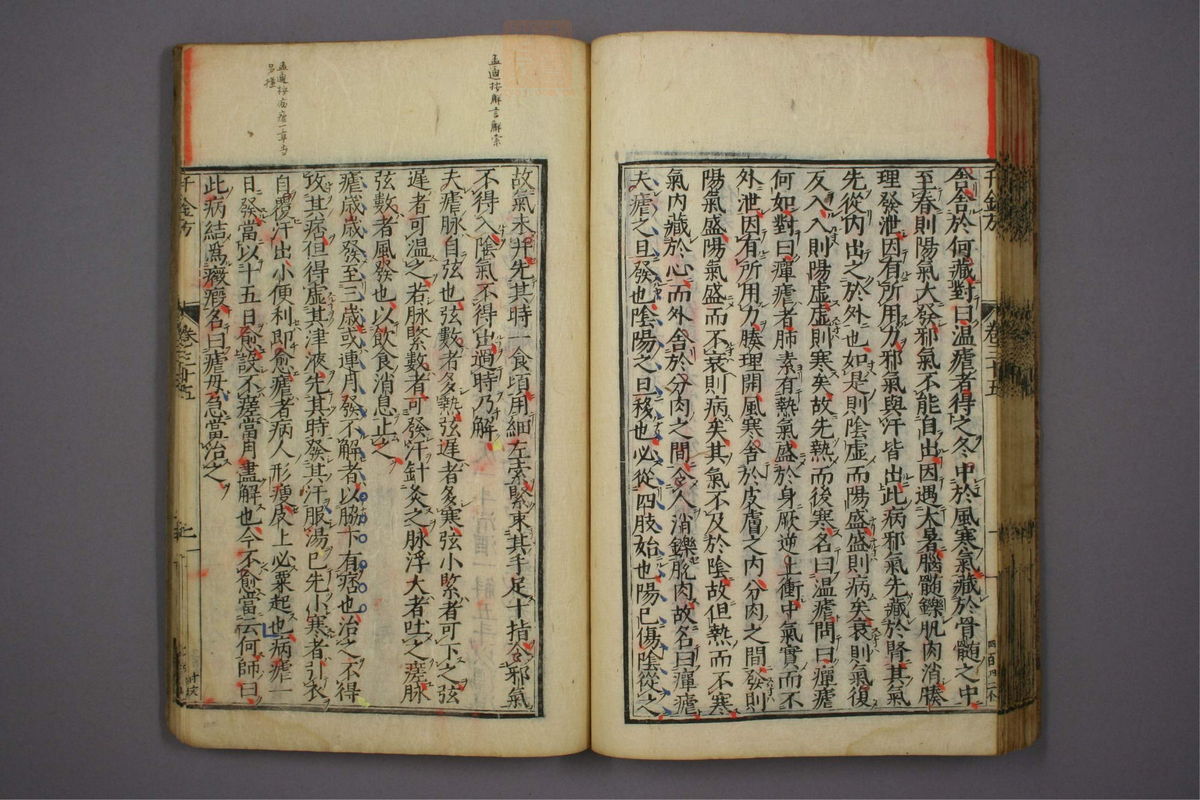 舎舎於何藏對曰溫瘧者得之冬中於風寒氣藏於骨髓之中
至春則陽氣大發邪氣不能自出因遇大暑腦髓鑠肌肉消腠
理發泄因有所用力邪氣與汗皆出此病邪氣先藏於腎其氣
先從內出之於外也如是則陰虛而陽盛盛則病矣衰則氣復
反入入則陽虛虛則寒矣故先熱而後寒名曰溫瘧問曰癉瘧
何如對曰癉瘧者肺素有熱氣盛於身厥逆上衝中氣實而不
外泄因有所用力腠理開風寒舍於皮膚之內分肉之間發則
陽氣盛陽氣盛而不衰則病矣其氣不及於陰故但熱而不寒
氣內藏於心而外舍於分肉之間令人消鑠肌肉故名曰癉瘧
夫瘧之且發也陰陽之且移也必從四肢始也陽已傷陰從之
千金方
卷三十五
故氣未并先其時一食頃用細左索緊束其手足十指令邪氣
不得入陰氣不得出過時乃解
夫瘧脉自弦也弦數者多熱弦遲者多寒弦小緊者可下之弦
遲者可溫之若脉緊數者可發汗針灸之脉浮大者吐之瘥脉
弦數者風發也以飲食消息止之
瘧歲歲發至三歲或連月發不解者以脇下有痞也治之不得
攻其痞但得虛其津液先其時發其汗服湯已先小寒者引衣
自覆汗出小便利即愈瘧者病人形瘦皮上必粟起也病瘧一
日發當以十五日愈設不瘥當月盡解也今不愈當云何師曰
此病結爲癥瘕名曰瘧母急當治之
千金方
卷三十五
孟迪按解言解索
孟迪按病瘧一章当
另提